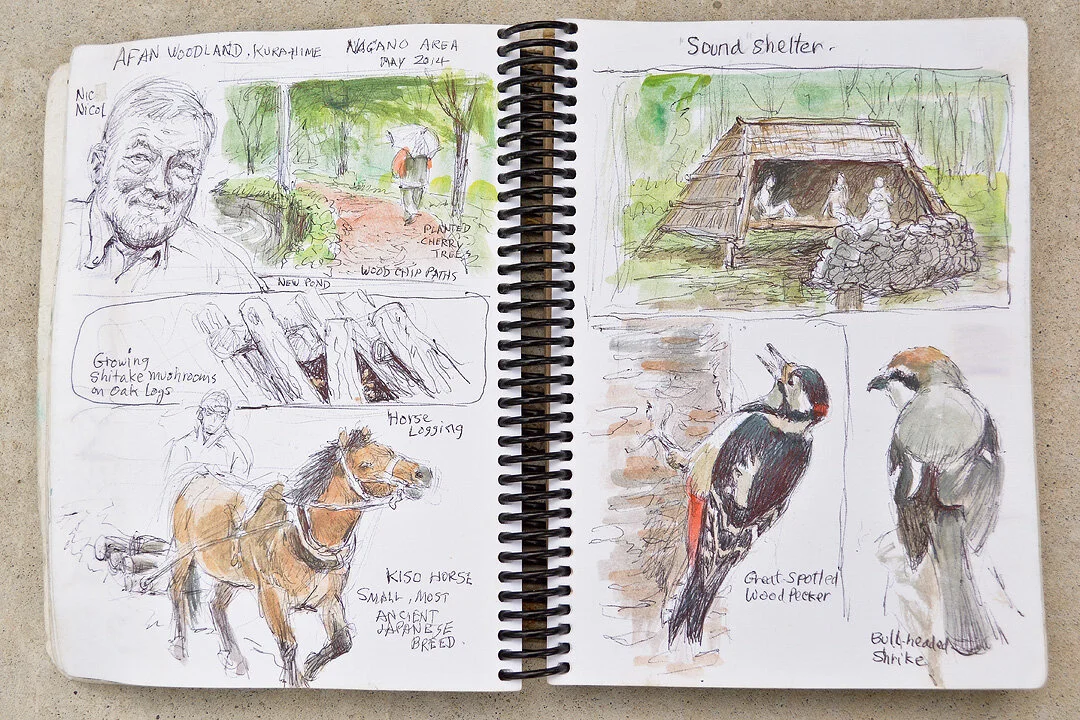 AFAN WOODLAND, KURAHIME NAGANO AREA
MAY 2014
NIC
NICOL
PLANTED
CHERRY
TREES
WOODCHIP PATHS
NEW POND
Growing
Shitake mushrooms
on Oak Logs
Horse
Logging
KISO HORSE
SMALL, MOST
ANCIENT
JAPANESE
BREED.
Sound Shelter.
Great-Spotted
Woodpecker
Bull-headed
Shrike